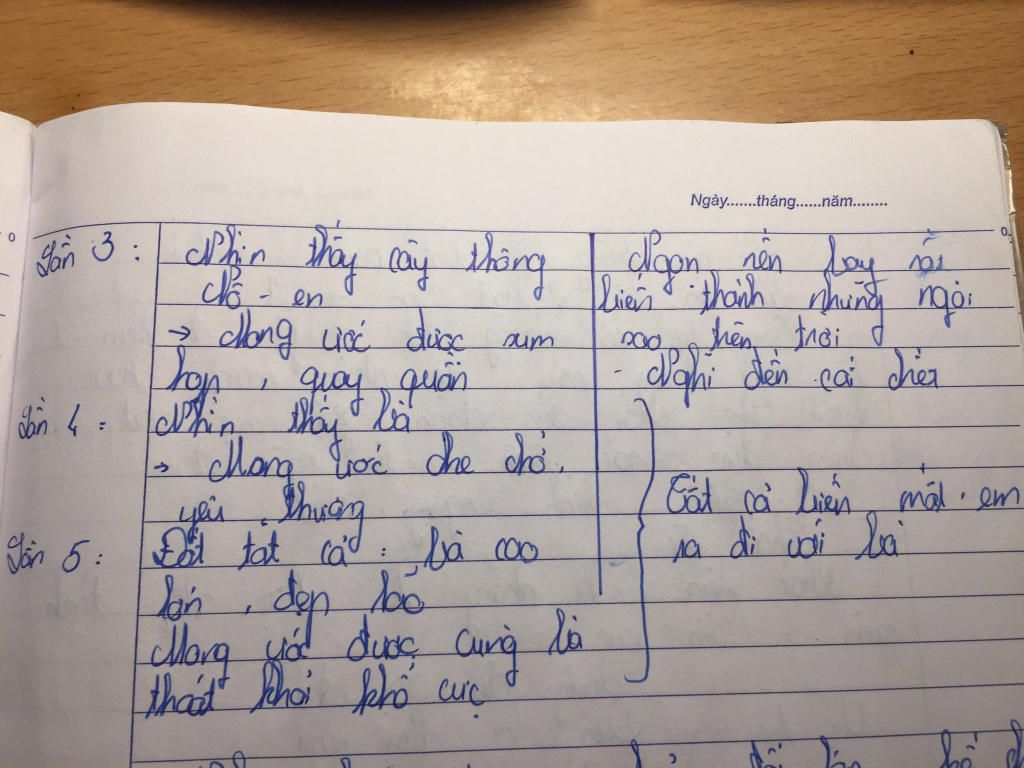 Ngày.......tháng......năm........
Lần 3 :
Nhìn thấy cây thông
Nô - en
→ Mong ước được xum
họp , quây quần
Ngọn nến bay rồi
biến thành những ngôi
sao trên trời
- Nghĩ đến cái chết
Lần 4 :
Nhìn thấy bà
→ Mong ước che chở,
yêu thương
Lần 5 :
Đốt tất cả : bà cao
lớn , đẹp lão
Mong ước được cùng bà
thoát khỏi khổ cực
Tất cả biến mất. em
ra đi với bà